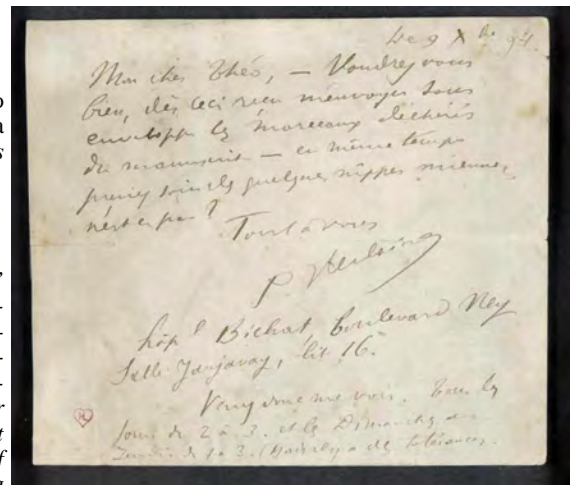 Le 9 Xbre 94.
Mon cher Théo, — Voudrez vous
bien, dès ceci reçu m'envoyer sous
enveloppe les morceaux déchirés
du manuscrit — en même temps
prenez soin des quelques nippes miennes,
n'est ce pas ?
Tout à vous
P. Verlaine
hôpl Bichat, boulevard Ney
Salle Jarjavay, lit 16.
Venez donc me voir. Tous les
jours de 2 à 3. et les Dimanches et
Jeudis de 1 à 3. Mais il y a des tolérances.